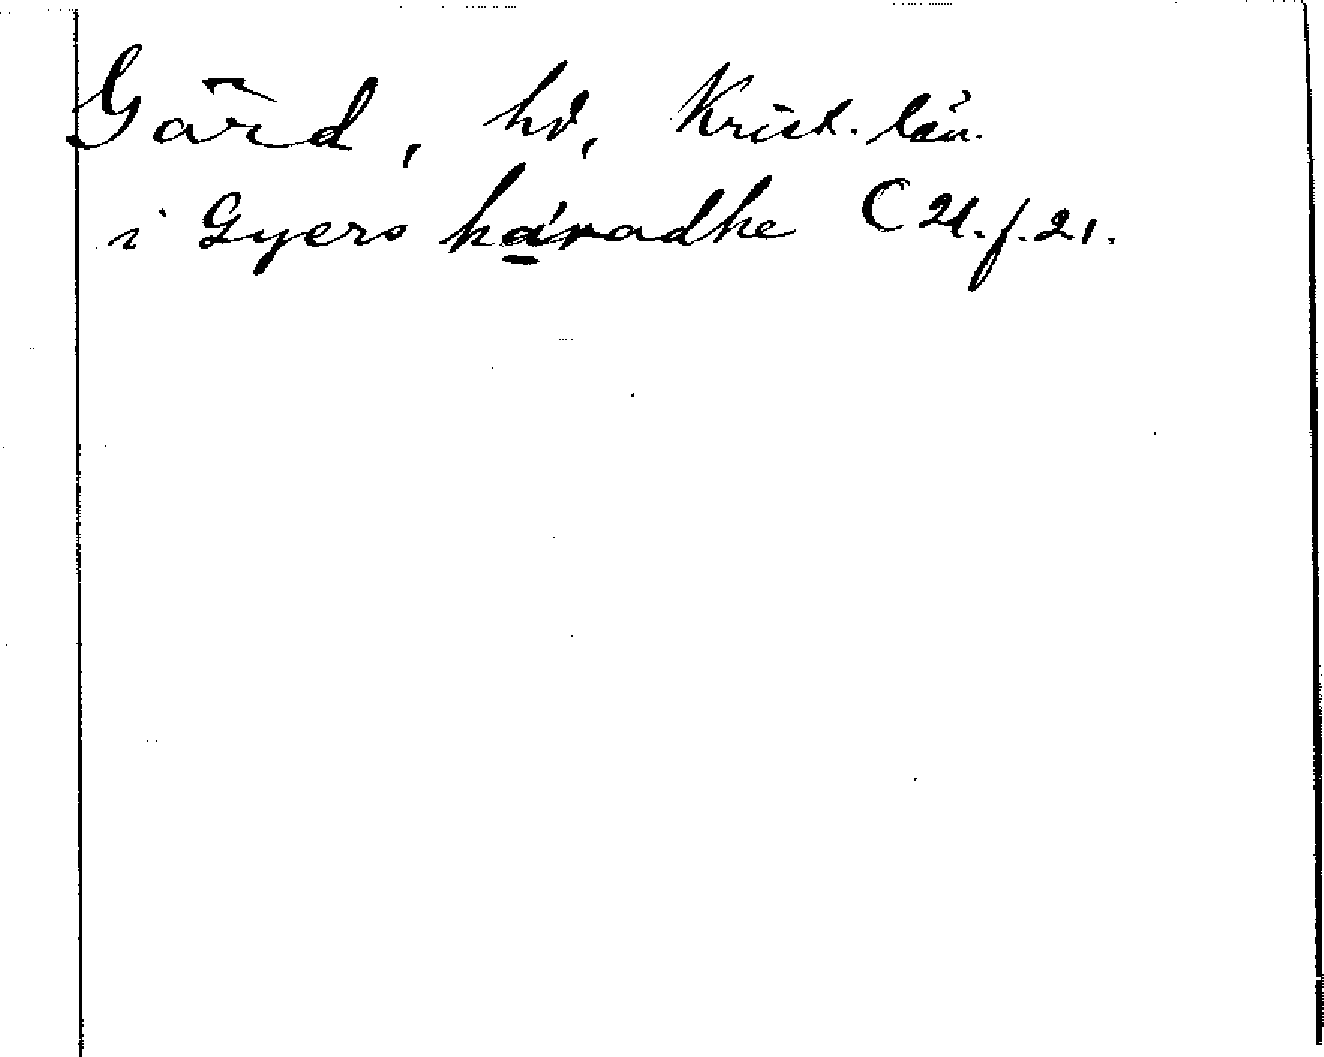 Gärd, hd, Krist. län.
i Gyers håradhe C 21. f. 21.